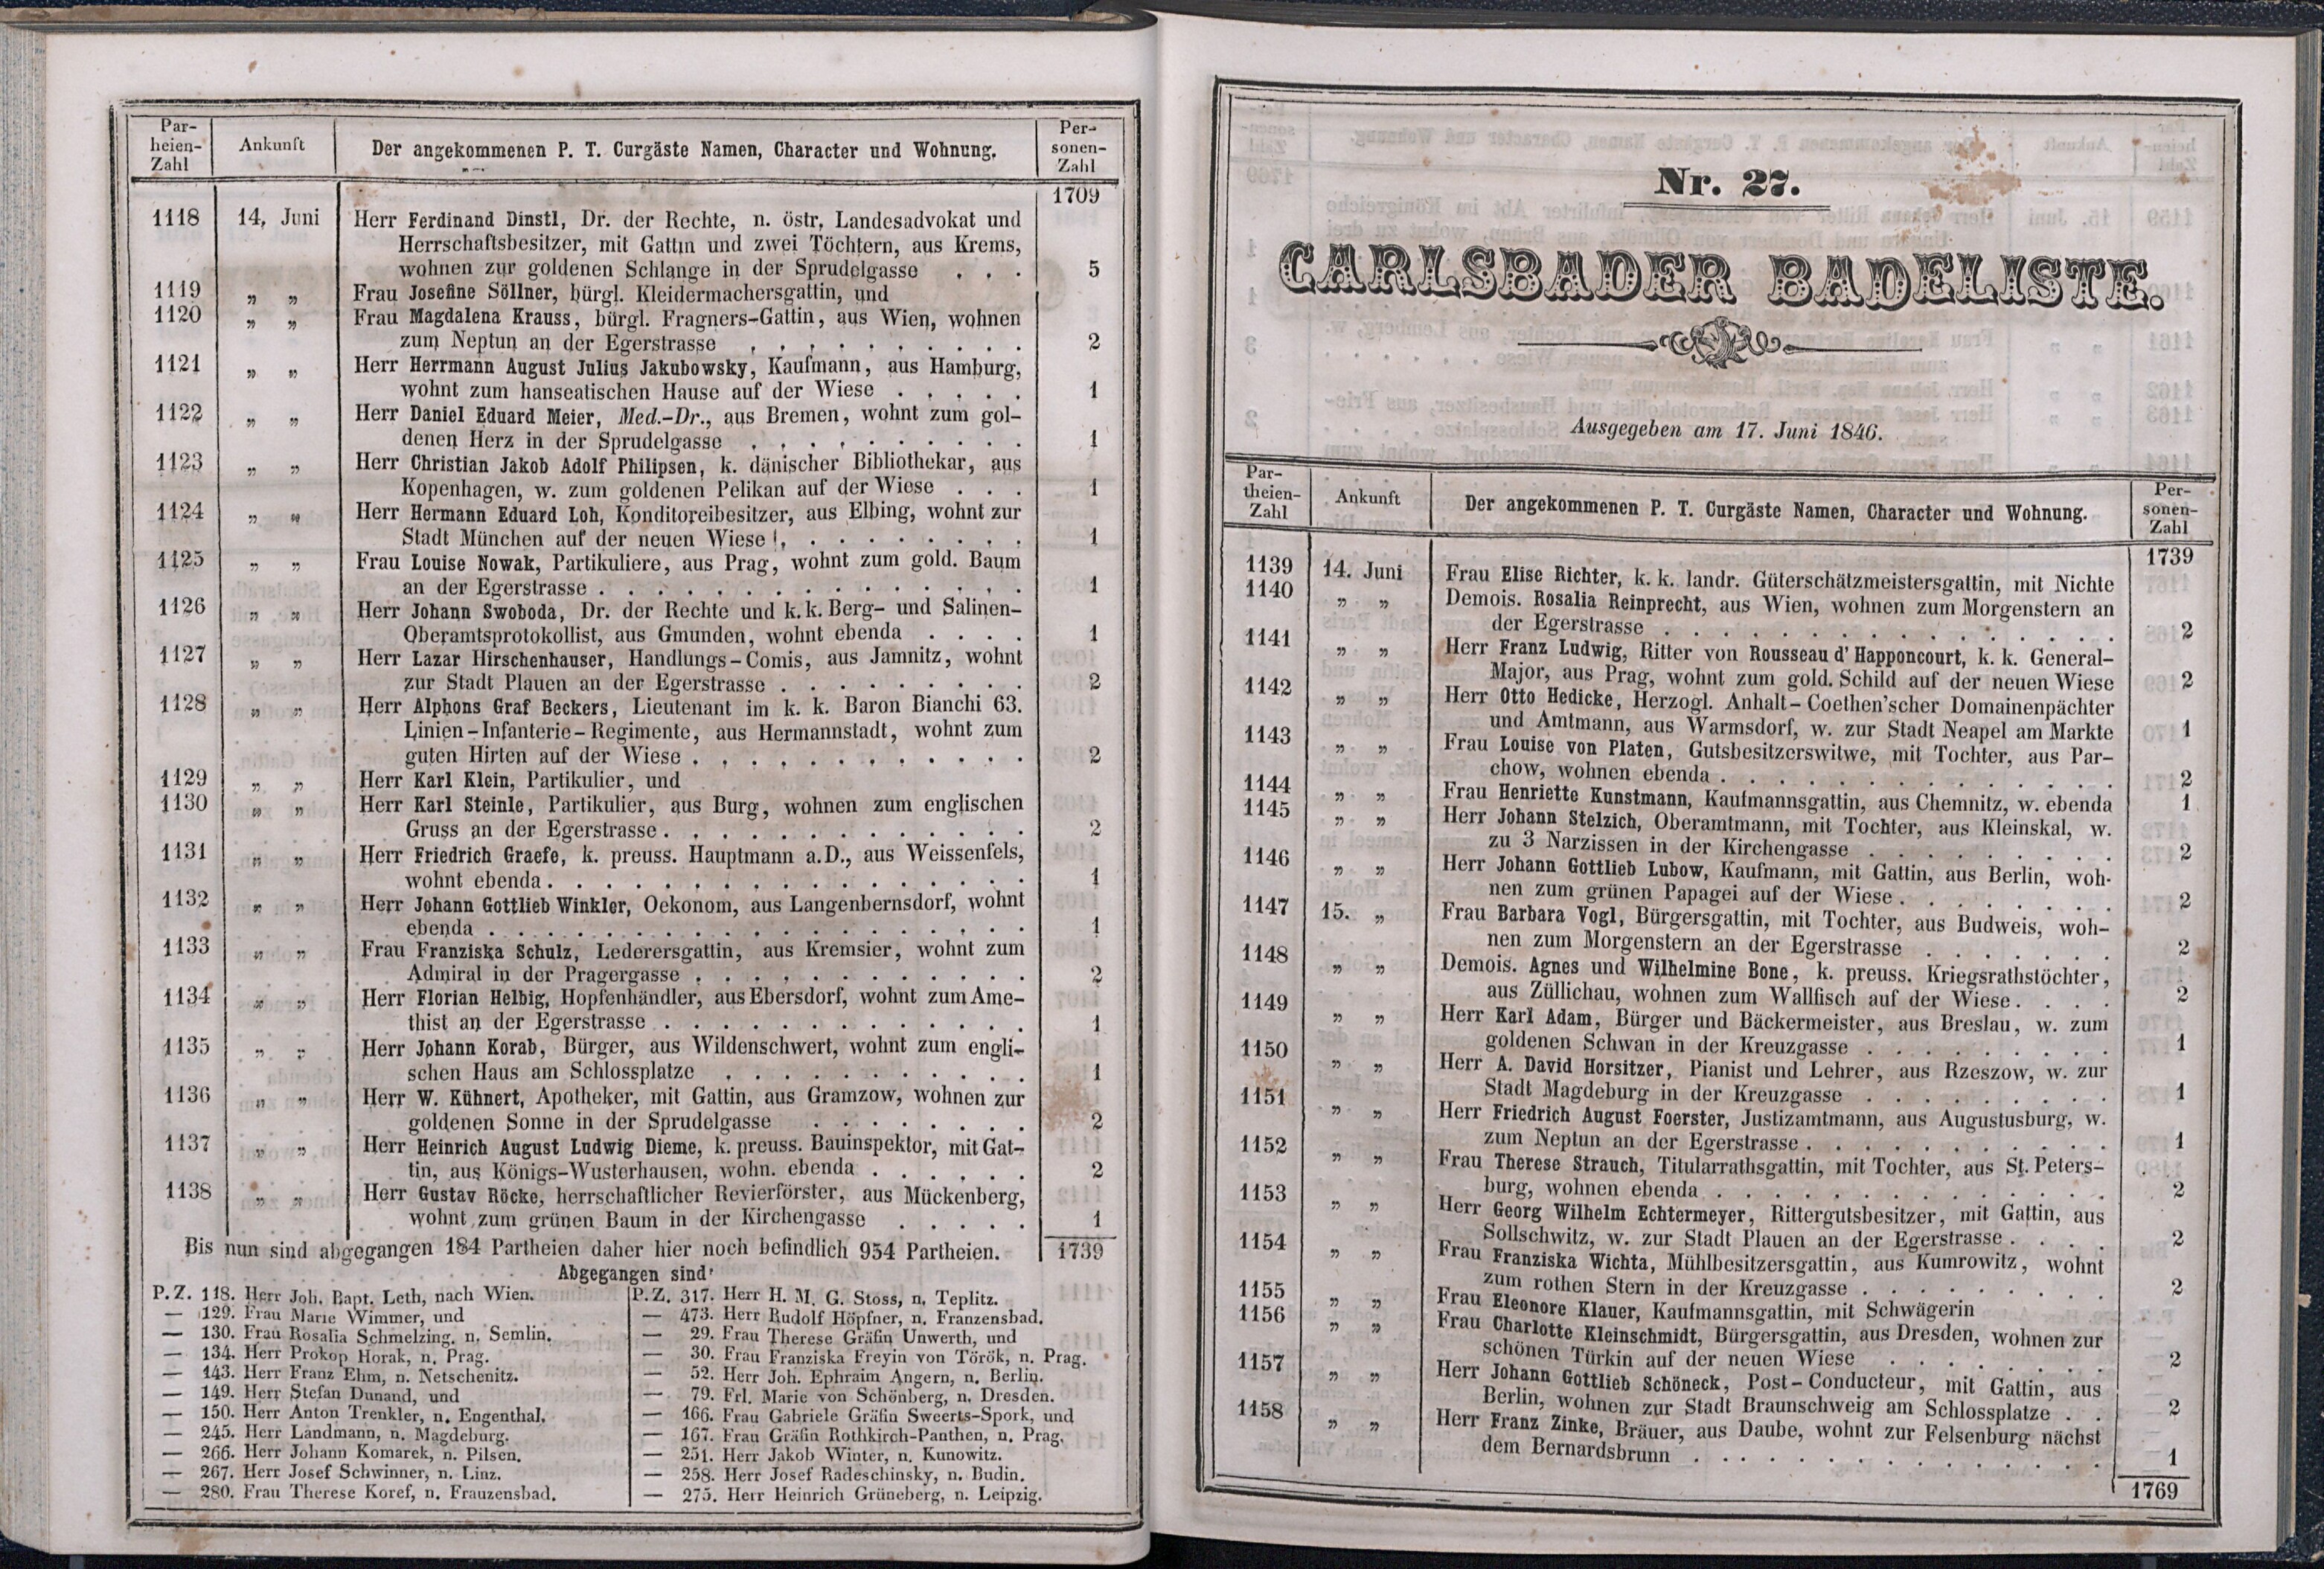 Par-
heien-
Zahl
Ankunft
Der angekommenen P. T. Curgäste Namen, Character und Wohnung.
Per-
sonen-
Zahl
1709
1118 14, Juni Herr Ferdinand Dinstl, Dr. der Rechte, n. östr, Landesadvokat und
Herrschaftsbesitzer, mit Gattin und zwei Töchtern, aus Krems,
wohnen zur goldenen Schlange in der Sprudelgasse . . . 5
1119 „ „ Frau Josefine Söllner, bürgl. Kleidermachersgattin, und
1120 „ „ Frau Magdalena Krauss, bürgl. Fragners-Gattin, aus Wien, wohnen
zum Neptun an der Egerstrasse . . . . . . . . . . 2
1121 „ „ Herr Herrmann August Julius Jakubowsky, Kaufmann, aus Hamburg,
wohnt zum hanseatischen Hause auf der Wiese . . . . . 1
1122 „ „ Herr Daniel Eduard Meier, Med.-Dr., aus Bremen, wohnt zum gol-
denen Herz in der Sprudelgasse . . . . . . . . . . 1
1123 „ „ Herr Christian Jakob Adolf Philipsen, k. dänischer Bibliothekar, aus
Kopenhagen, w. zum goldenen Pelikan auf der Wiese . . . 1
1124 „ „ Herr Hermann Eduard Loh, Konditoreibesitzer, aus Elbing, wohnt zur
Stadt München auf der neuen Wiese . . . . . . . . 1
1125 „ „ Frau Louise Nowak, Partikuliere, aus Prag, wohnt zum gold. Baum
an der Egerstrasse . . . . . . . . . . . . . . . 1
1126 „ „ Herr Johann Swoboda, Dr. der Rechte und k. k. Berg- und Salinen-
Oberamtsprotokollist, aus Gmunden, wohnt ebenda . . . . 1
1127 „ „ Herr Lazar Hirschenhauser, Handlungs-Comis, aus Jamnitz, wohnt
zur Stadt Plauen an der Egerstrasse . . . . . . . . . 2
1128 „ „ Herr Alphons Graf Beckers, Lieutenant im k. k. Baron Bianchi 63.
Linien-Infanterie-Regimente, aus Hermannstadt, wohnt zum
guten Hirten auf der Wiese . . . . . . . . . . . . 2
1129 „ „ Herr Karl Klein, Partikulier, und
1130 „ „ Herr Karl Steinle, Partikulier, aus Burg, wohnen zum englischen
Gruss an der Egerstrasse . . . . . . . . . . . . . 2
1131 „ „ Herr Friedrich Graefe, k. preuss. Hauptmann a.D., aus Weissenfels,
wohnt ebenda . . . . . . . . . . . . . . . . . 1
1132 „ „ Herr Johann Gottlieb Winkler, Oekonom, aus Langenbernsdorf, wohnt
ebenda . . . . . . . . . . . . . . . . . . . 1
1133 „ „ Frau Franziska Schulz, Lederersgattin, aus Kremsier, wohnt zum
Admiral in der Pragergasse . . . . . . . . . . . . 2
1134 „ „ Herr Florian Helbig, Hopfenhändler, aus Ebersdorf, wohnt zum Ame-
thist an der Egerstrasse . . . . . . . . . . . . . 1
1135 „ „ Herr Johann Korab, Bürger, aus Wildenschwert, wohnt zum engli-
schen Haus am Schlossplatze . . . . . . . . . . . 1
1136 „ „ Herr W. Kühnert, Apotheker, mit Gattin, aus Gramzow, wohnen zur
goldenen Sonne in der Sprudelgasse . . . . . . . . 2
1137 „ „ Herr Heinrich August Ludwig Dieme, k. preuss. Bauinspektor, mit Gat-
tin, aus Königs-Wusterhausen, wohn. ebenda . . . . . . 2
1138 „ „ Herr Gustav Röcke, herrschaftlicher Revierförster, aus Mückenberg,
wohnt zum grünen Baum in der Kirchengasse . . . . . 1
Bis nun sind abgegangen 184 Partheien daher hier noch befindlich 954 Partheien. 1739
Abgegangen sind
P. Z. 118. Herr Joh. Bapt. Leth, nach Wien.
— 129. Frau Marie Wimmer, und
— 130. Frau Rosalia Schmelzing, n. Semlin.
— 134. Herr Prokop Horak, n. Prag.
— 143. Herr Franz Ehm, n. Netschenitz.
— 149. Herr Stefan Dunand, und
— 150. Herr Anton Trenkler, n. Engenthal.
— 245. Herr Landmann, n. Magdeburg.
— 266. Herr Johann Komarek, n. Pilsen.
— 267. Herr Josef Schwinner, n. Linz.
— 280. Frau Therese Koref, n. Frauzensbad.
P. Z. 317. Herr H. M. G. Stoss, n. Teplitz.
— 473. Herr Rudolf Höpfner, n. Franzensbad.
— 29. Frau Therese Gräfin Unwerth, und
— 30. Frau Franziska Freyin von Török, n. Prag.
— 52. Herr Joh. Ephraim Angern, n. Berlin.
— 79. Frl. Marie von Schönberg, n. Dresden.
— 166. Frau Gabriele Gräfin Sweerts-Spork, und
— 167. Frau Gräfin Rothkirch-Panthen, n. Prag.
— 251. Herr Jakob Winter, n. Kunowitz.
— 258. Herr Josef Radeschinsky, n. Budin.
— 275. Herr Heinrich Grüneberg, n. Leipzig.
Nr. 27.
CARLSBADER BADELISTE.
Ausgegeben am 17. Juni 1846.
Par-
theien-
Zahl
Ankunft
Der angekommenen P. T. Curgäste Namen, Character und Wohnung.
Per-
sonen-
Zahl
1739
1139 14. Juni Frau Elise Richter, k. k. landr. Güterschätzmeistersgattin, mit Nichte
1140 „ „ Demois. Rosalia Reinprecht, aus Wien, wohnen zum Morgenstern an
der Egerstrasse . . . . . . . . . . . . . . . . 2
1141 „ „ Herr Franz Ludwig, Ritter von Rousseau d' Happoncourt, k. k. General-
Major, aus Prag, wohnt zum gold. Schild auf der neuen Wiese 2
1142 „ „ Herr Otto Hedicke, Herzogl. Anhalt-Coethen'scher Domainenpächter
und Amtmann, aus Warmsdorf, w. zur Stadt Neapel am Markte 1
1143 „ „ Frau Louise von Platen, Gutsbesitzerswitwe, mit Tochter, aus Par-
chow, wohnen ebenda . . . . . . . . . . . . . . 2
1144 „ „ Frau Henriette Kunstmann, Kaufmannsgattin, aus Chemnitz, w. ebenda 1
1145 „ „ Herr Johann Stelzich, Oberamtmann, mit Tochter, aus Kleinskal, w.
zu 3 Narzissen in der Kirchengasse . . . . . . . . . 2
1146 „ „ Herr Johann Gottlieb Lubow, Kaufmann, mit Gattin, aus Berlin, woh-
nen zum grünen Papagei auf der Wiese . . . . . . . . 2
1147 15. „ Frau Barbara Vogl, Bürgersgattin, mit Tochter, aus Budweis, woh-
nen zum Morgenstern an der Egerstrasse . . . . . . . 2
1148 „ „ Demois. Agnes und Wilhelmine Bone, k. preuss. Kriegsrathstöchter,
aus Züllichau, wohnen zum Wallfisch auf der Wiese . . . . 2
1149 „ „ Herr Karl Adam, Bürger und Bäckermeister, aus Breslau, w. zum
goldenen Schwan in der Kreuzgasse . . . . . . . . . 1
1150 „ „ Herr A. David Horsitzer, Pianist und Lehrer, aus Rzeszow, w. zur
Stadt Magdeburg in der Kreuzgasse . . . . . . . . . 1
1151 „ „ Herr Friedrich August Foerster, Justizamtmann, aus Augustusburg, w.
zum Neptun an der Egerstrasse . . . . . . . . . . . 1
1152 „ „ Frau Therese Strauch, Titularrathsgattin, mit Tochter, aus St. Peters-
burg, wohnen ebenda . . . . . . . . . . . . . . 2
1153 „ „ Herr Georg Wilhelm Echtermeyer, Rittergutsbesitzer, mit Gattin, aus
Sollschwitz, w. zur Stadt Plauen an der Egerstrasse . . . . 2
1154 „ „ Frau Franziska Wichta, Mühlbesitzersgattin, aus Kumrowitz, wohnt
zum rothen Stern in der Kreuzgasse . . . . . . . . . 2
1155 „ „ Frau Eleonore Klauer, Kaufmannsgattin, mit Schwägerin
1156 „ „ Frau Charlotte Kleinschmidt, Bürgersgattin, aus Dresden, wohnen zur
schönen Türkin auf der neuen Wiese . . . . . . . . 2
1157 „ „ Herr Johann Gottlieb Schöneck, Post-Conducteur, mit Gattin, aus
Berlin, wohnen zur Stadt Braunschweig am Schlossplatze . . 2
1158 „ „ Herr Franz Zinke, Bräuer, aus Daube, wohnt zur Felsenburg nächst
dem Bernardsbrunn . . . . . . . . . . . . . . . 1
1769